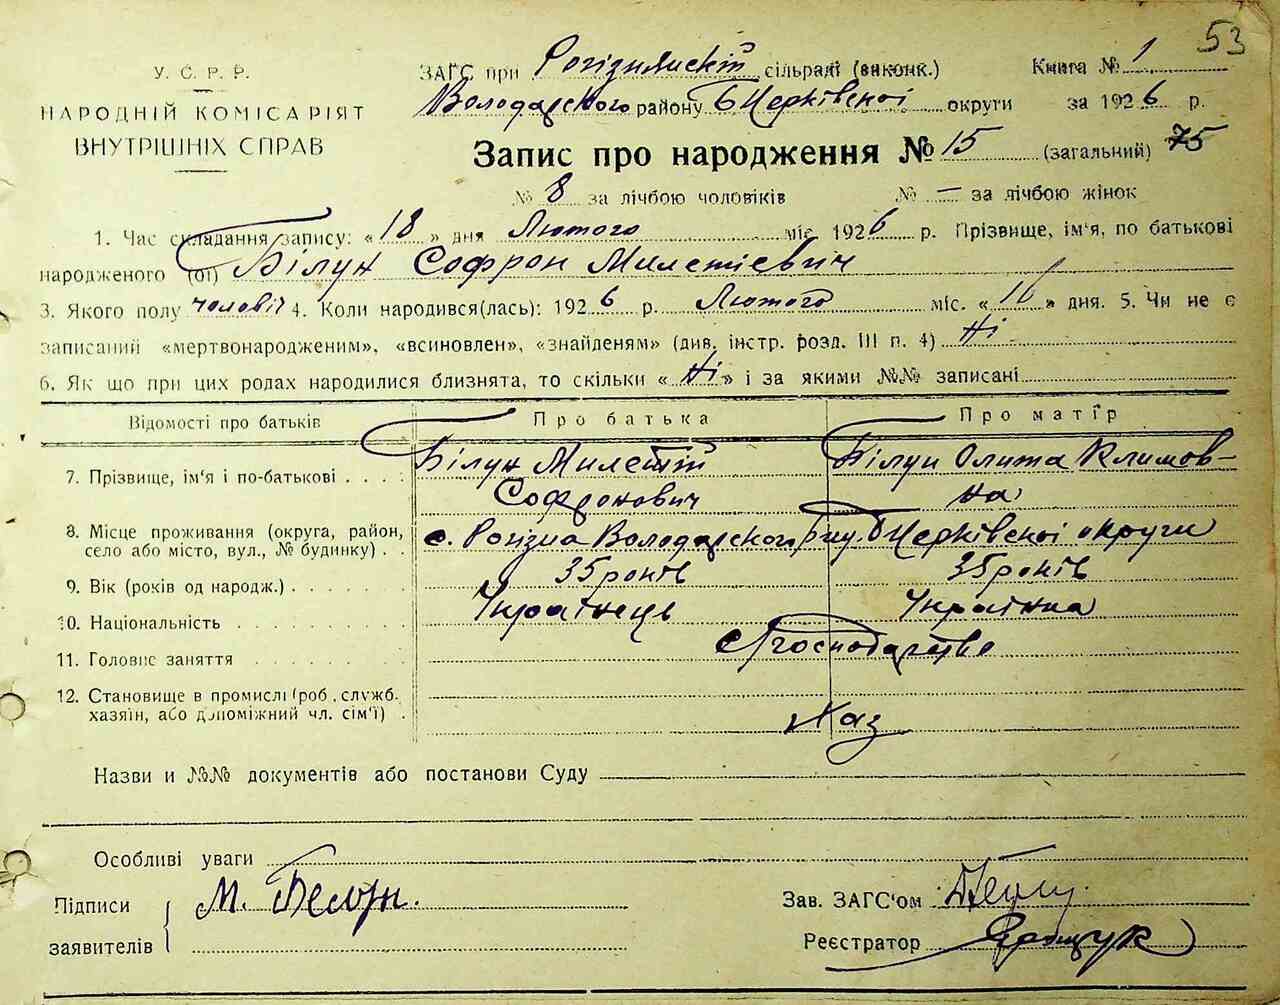 53
У. С. Р. Р.
НАРОДНІЙ КОМІСАРІЯТ
ВНУТРІШНІХ СПРАВ
ЗАГС при Рогізнянскій сільраді (виконк.) Книга № 1
Володарского району БЦерківскоі округи за 1926 р.
Запис про народження № 15 (загальний) 75
№ 8 за лічбою чоловіків № — за лічбою жінок
1. Час складання запису: «18» дня Лютого міс 1926 р. Прізвище, ім'я, по батькові
народженого (ої) Білун Софрон Милетієвич
3. Якого полу чоловіч 4. Коли народився(лась): 1926 р. Лютого міс. «10» дня. 5. Чи не є
записаний «мертвонародженим», «всиновлен», «знайденям» (див. інстр. розд. III п. 4) Ні
6. Як що при цих родах народилися близнята, то скільки «Ні» і за якими №№ записані
Відомості про батьків Про батька Про матір
7. Прізвище, ім'я і по-батькові Білун Милетій Білун Олита Климов-
Софронович на
8. Місце проживання (округа, район,
село або місто, вул., № будинку) с. Рогізна Володарского рну. БЦерківскоі округи
9. Вік (років од народж.) 35 років 35 років
10. Національність Українець Українка
11. Головне заняття С/господарство
12. Становище в промислі (роб., служб.
хазяїн, або допоміжний чл. сім'ї) Хаз
Назви и №№ документів або постанови Суду
Особливі уваги
Підписи М. Белун. Зав. ЗАГС'ом
заявителів Реєстратор Ярощук